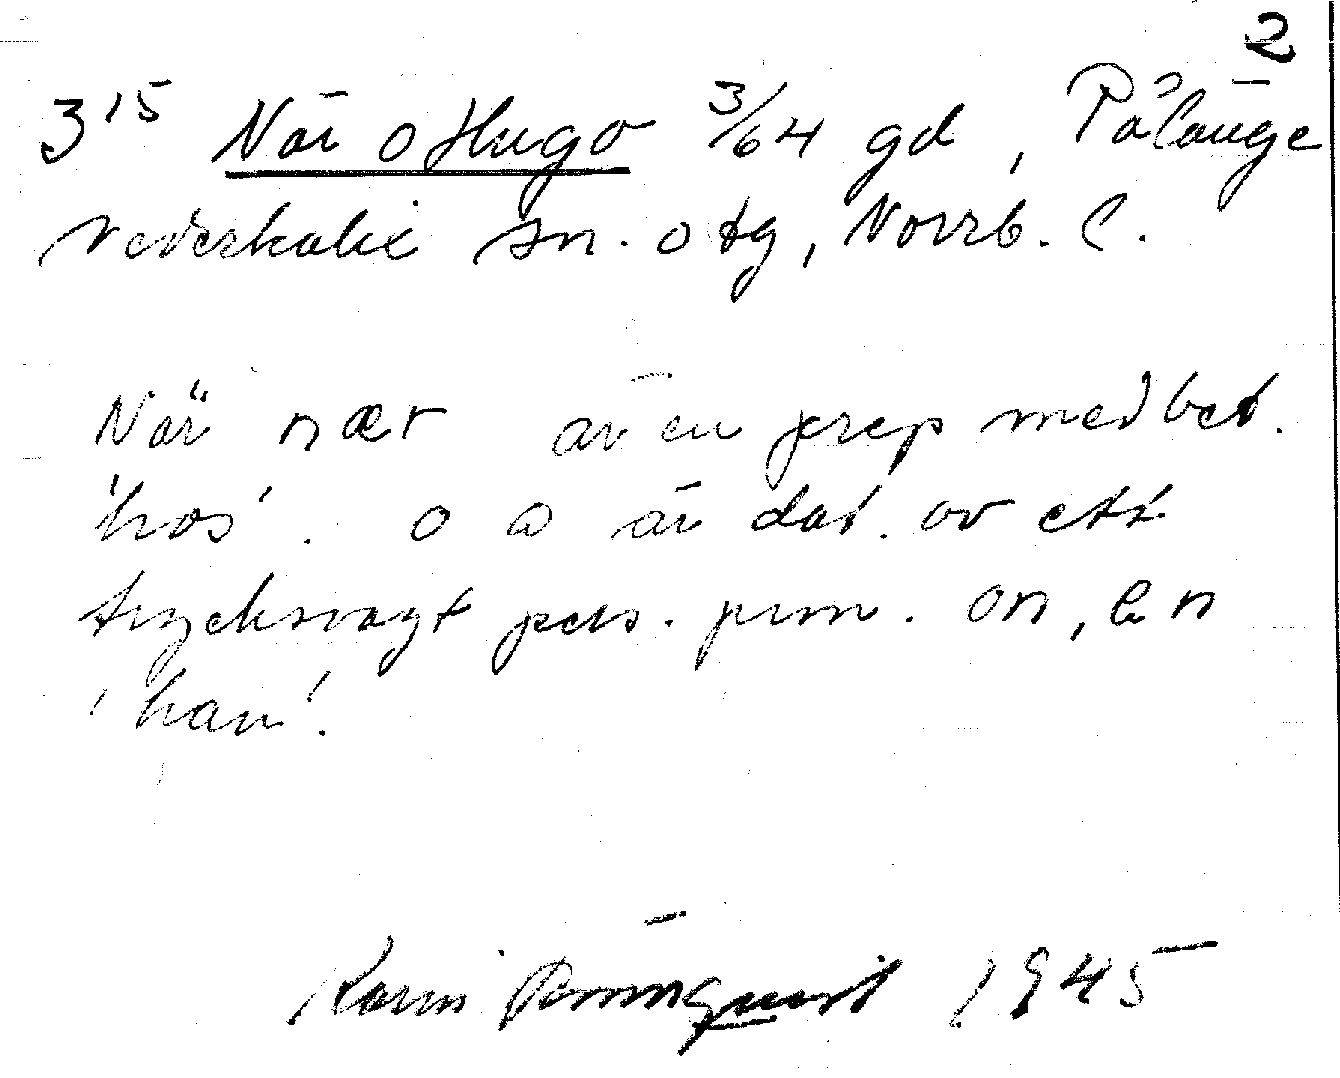 2
3¹⁵ När o Hugo 3/64 gd, Pålänge
Nederkalix sn. o tg, Norrb. l.
När nær är en prep med bet.
'hos'. o ɷ är dat. av ett
trycksvagt pers. pron. on, en
'han'.
Karin Rönnquist 1945